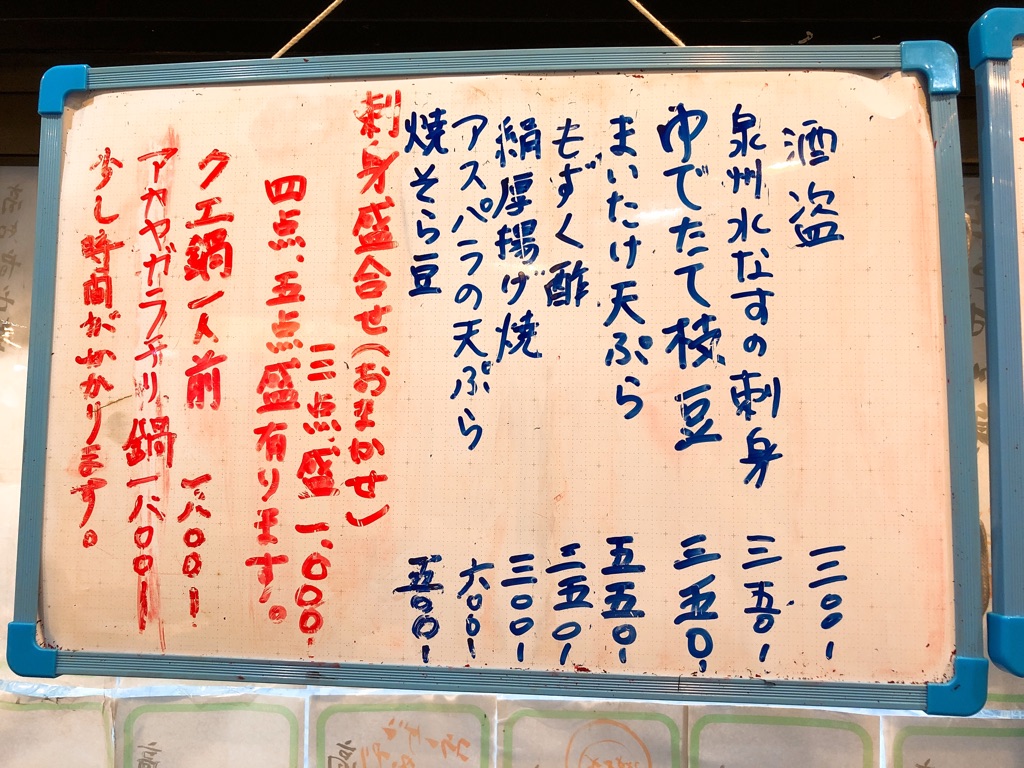 酒盗 三〇〇-
泉州水なすの刺身 三五〇-
ゆでたて枝豆 三五〇-
まいたけ天ぷら 五五〇-
もずく酢 三五〇-
絹厚揚げ焼 三〇〇-
アスパラの天ぷら 六〇〇-
焼そら豆 五〇〇-
刺身盛合せ(おまかせ)
三点盛 一、〇〇〇-
四点、五点盛有ります。
クエ鍋一人前 一八〇〇-
アカヤガラチリ鍋 一八〇〇-
少し時間がかかります。